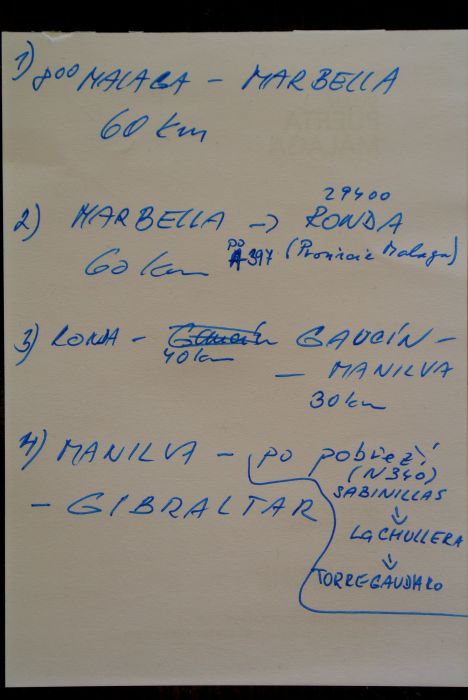 1) 800 MALAGA - MARBELLA
60 km
29400
2) MARBELLA -> RONDA
60 km po A397 (Province Malaga)
3) RONDA - Gaucín GAUCÍN -
40 km - MANILVA
30 km
4) MANILVA - po pobřeží
(N340)
SABINILLAS
- GIBRALTAR
LA CHULLERA
TORREGAUDARO